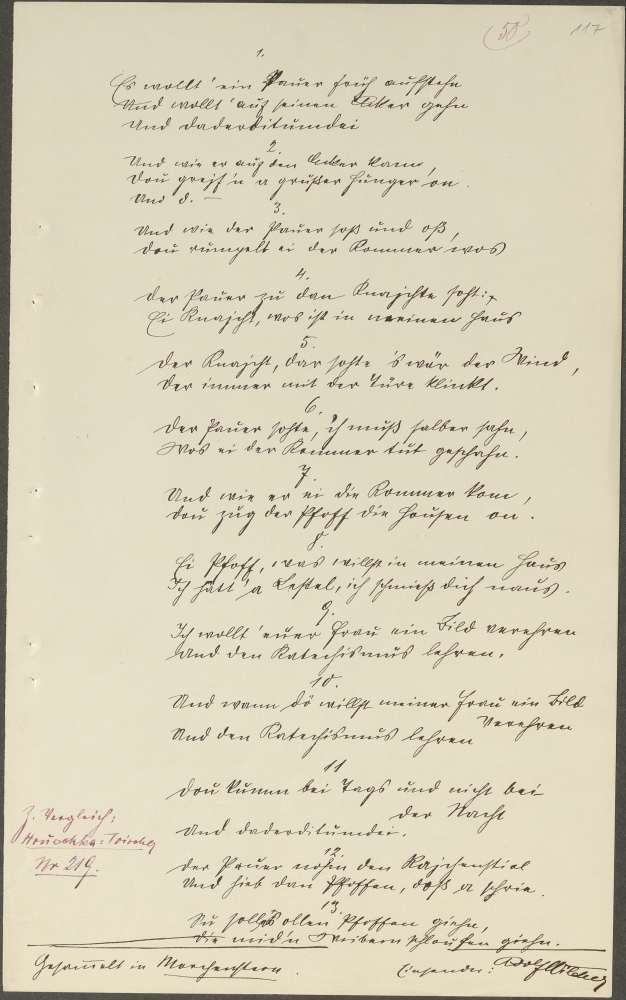 (58) 117
1.
Es wollt' ein Pauer früh aufstehn
Und wollt' auf seinen Acker gehn
Und daderditumdei
2.
Und wie er auf den Acker kam,
Dou greif'n a grußer Hunger on.
Und d. —
3.
Und wie der Pauer soß und oß,
Dou rumpelt ei der Kommer wos
4.
Der Pauer zu dan Knajchte soht:
Ei Knajcht, wos ist in meinen Haus
5.
Der Knajcht, dar sohte 's wär der Wind,
Der immer mit der Türe klinkt.
6.
Der Pauer sohte, ich muß salber sahn,
Wos ei der Kommer tut geschahn.
7.
Und wie er ei die Kommer kom,
Dou zug der Pfoff die Housen on.
8.
Ei Pfoff, was willst in meinen Haus
Ich hätt' a , ich schmieß dich naus.
9.
Ich wollt' euer Frau ein Bild verehren
Und den Katechismus lehren.
10.
Und wann dö willst meiner Frau ein Bild
verehren
Und den Katechismus lehren
11
Dou kumm bei Tags und nicht bei
der Nacht
Und daderditumdei.
12.
Der Pauer nohm den
Und hieb dan Pfoffen, doß a schrie.
13.
Su sollps ollen Pfoffen giehn,
Die mid'n Weibern schloufen giehn.
z. Vergleich:
Hruschka-Toischer
Nr 219.
Gesammelt in Morchenstern.
Einsender: Adolf